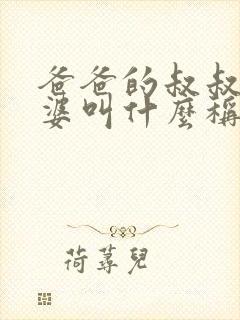 爸爸的叔叔
婆叫什麼稱
荷蕁兒